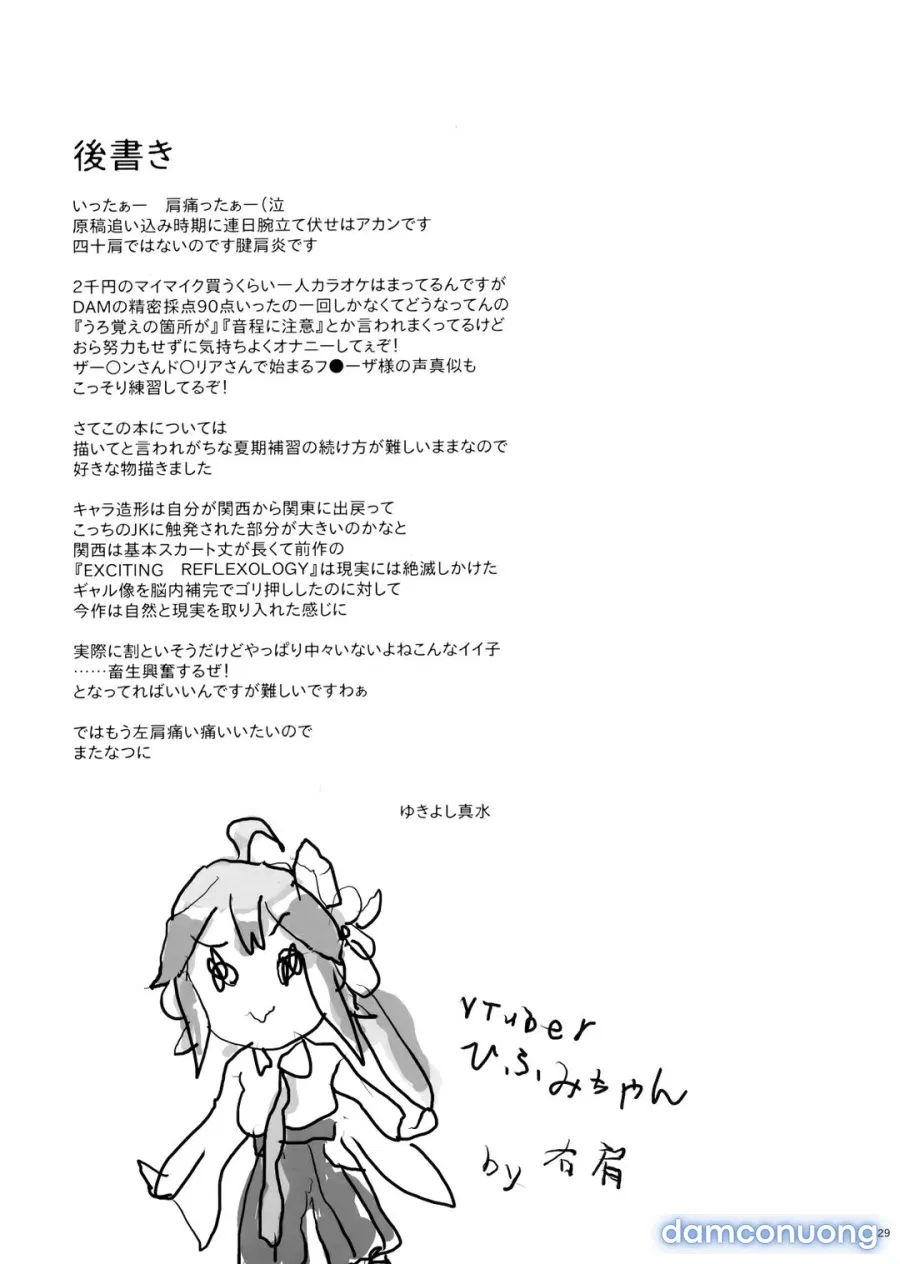 後書き
いったぁー　肩痛ったぁー(泣
原稿追い込み時期に連日腕立て伏せはアカンです
四十肩ではないのです腱肩炎です
2千円のマイマイク買うくらい一人カラオケはまってるんですが
DAMの精密採点90点いったの一回しかなくてどうなってんの
『うろ覚えの箇所が』『音程に注意』とか言われまくってるけど
おら努力もせずに気持ちよくオナニーしてぇぞ!
ザー〇ンさんド〇リアさんで始まるフ●ーザ様の声真似も
こっそり練習してるぞ!
さてこの本については
描いてと言われがちな夏期補習の続け方が難しいままなので
好きな物描きました
キャラ造形は自分が関西から関東に出戻って
こっちのJKに触発された部分が大きいのかなと
関西は基本スカート丈が長くて前作の
『EXCITING　REFLEXOLOGY』は現実には絶滅しかけた
ギャル像を脳内補完でゴリ押ししたのに対して
今作は自然と現実を取り入れた感じに
実際に割といそうだけどやっぱり中々いないよねこんなイイ子
……畜生興奮するぜ!
となってればいいんですが難しいですわぁ
ではもう左肩痛い痛いいたいので
またなつに
ゆきよし真水
VTuber
ひふみちゃん
by 右肩
damconuong
29